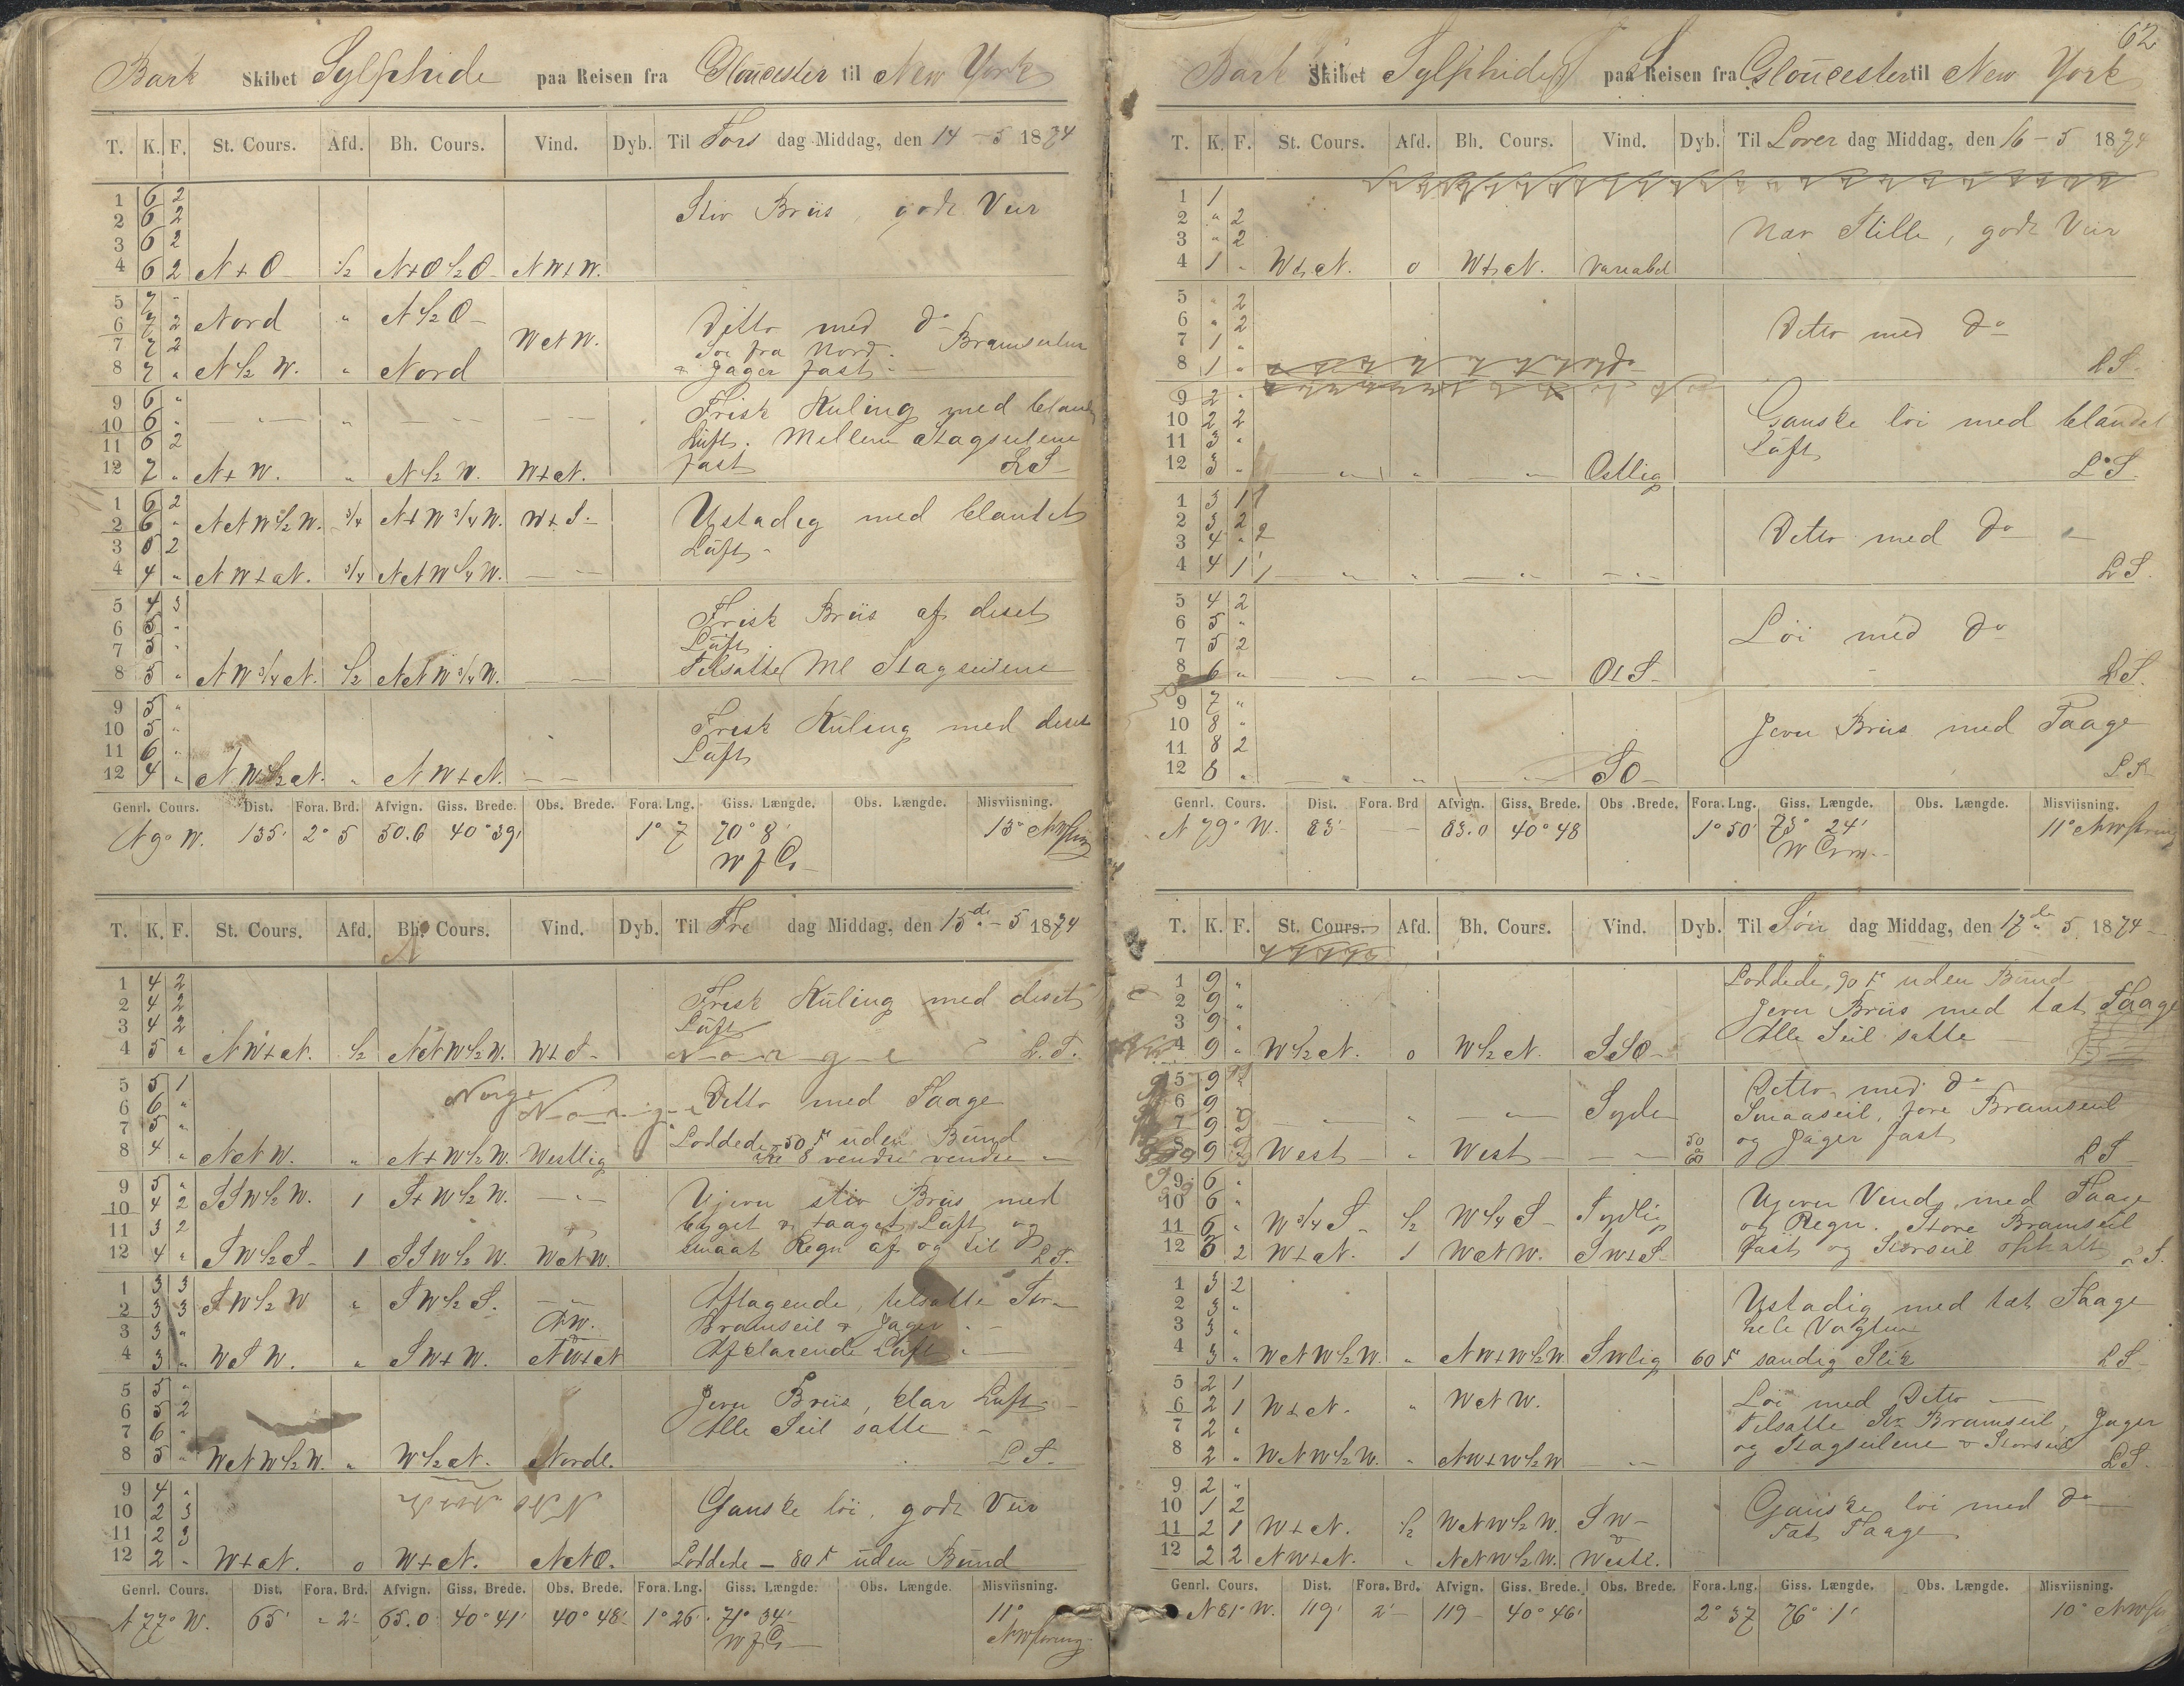 Bark Skibet Sylphide paa Reisen fra Gloucester til New York
T. K. F. St. Cours. Afd. Bh. Cours. Vind. Dyb. Til Tors dag Middag, den 14 - 5 1874
1 6 2 Stiv Briis, godt Veir
2 6 2
3 6 2
4 6 2 N t O ½ N t O ½ O N W t W.
5 7 "
6 7 2 Nord " N ½ O Ditto med do
7 7 2 W N W. Søe fra Nord. Bramseilene
8 7 " N ½ W. " Nord & Jager fast
9 6 " Frisk Kuling med blandet
10 6 " Luft. Mellem Stagseilene
11 6 2 fast
12 7 " N t W. " N ½ W. W t N. L S
1 6 2 Ustadig med blandet
2 6 " N N W ½ W. ¾ N t W ¾ W. W t S. Luft
3 5 2
4 4 " N W t N. ¾ N N W ¼ W.
5 4 3 Frisk Briis af diset
6 5 " Luft
7 5 "
8 5 " N W ¾ N. ½ N N W ¾ W. Tilsatte Ml Stagseilene
9 5 " Frisk Kuling med diset
10 5 " Luft
11 6 "
12 4 " N W ½ N. " N W t N.
Genrl. Cours. Dist. Fora. Brd. Afvign. Giss. Brede. Obs. Brede. Fora. Lng. Giss. Længde. Obs. Længde. Misviisning.
N 9° W. 135' 2° 5 50.6 40° 39' 1° 7 70° 8' 13°
W f G
T. K. F. St. Cours. Afd. Bh. Cours. Vind. Dyb. Til Fre dag Middag, den 15de - 5 1874
1 4 2 Frisk Kuling med diset
2 4 2 Luft
3 4 2
4 5 " N W t N. ½ N N W ½ W. W t S Norge L. S.
5 5 1 Norge Ditto med Taage
6 6 " Norge
7 5 " Loddede 50 F uden Bund
8 4 " N N W. " N t W ½ W. Westlig Kl 8 vendte
9 5 " S S W ½ W. 1 S t W ½ W. Ujevn stiv Briis med
10 4 2 byget & taaget Luft og
11 3 2 smaat Regn af og til
12 4 " S W ½ S 1 S S W ½ W. W N W. L S.
1 3 3 Aftagende, tilsatte Stor
2 3 3 S W ½ W " S W ½ S. Bramseil & Jager
3 3 " N W. Afklarende Luft
4 3 " W S W. " S W t W. N W t N
5 5 " Jevn Briis, klar Luft
6 5 2 Alle Seil satte
7 6 "
8 5 " W N W ½ W. " W ½ N. Nordl. L S.
9 4 " Ganske løi, godt Veir
10 2 3
11 2 3
12 2 " W t N. 0 W t N. N N O. Loddede - 80 F uden Bund
Genrl. Cours. Dist. Fora. Brd. Afvign. Giss. Brede. Obs. Brede. Fora. Lng. Giss. Længde. Obs. Længde. Misviisning.
N 77° W. 65' " 2' 65.0 40° 41' 40° 48' 1° 26' 71° 34' 11°
W f G NWstring
62
Bark Skibet Sylphide paa Reisen fra Gloucester til New York
T. K. F. St. Cours. Afd. Bh. Cours. Vind. Dyb. Til Lover dag Middag, den 16 - 5 1874
1 1
2 " 2 Nær Stille, godt Veir
3 " 2
4 1 " W t N. 0 W t N. Variabel
5 " 2
6 " 2 Ditto med do
7 1 "
8 1 " L S.
9 2 " Ganske løi med blandet
10 2 2 Luft
11 3 "
12 3 " Ostlig L S.
1 3 1
2 3 2 Ditto med do
3 4 " 2
4 4 1 L S.
5 4 2 Løi med do
6 5 "
7 5 2
8 6 " O t S L S.
9 7 " Jevn Briis med Taage
10 8 "
11 8 2
12 8 " S O L S
Genrl. Cours. Dist. Fora. Brd Afvign. Giss. Brede. Obs .Brede. Fora. Lng. Giss. Længde. Obs. Længde. Misviisning.
N 79° W. 83' 83.0 40° 48 1° 50' 73° 24' 11° NWstring
T. K. F. St. Cours. Afd. Bh. Cours. Vind. Dyb. Til Søn dag Middag, den 17de 5 1874
1 9 " Loddede, 90 F uden Bund
2 9 " Jevn Briis med tæt Taage
3 9 " Alle Seil satte
4 9 " W ½ N. 0 W ½ N. S S O
5 9 Ditto med do
6 9 Syde Smaaseil, fore Bramseil
7 9 og Jager fast
8 9 West West L S
9 6 " Ujevn Vind, med Taage
10 6 " og Regn. Store Bramseil
11 6 " W ¾ S ½ W ¼ S Sydlig fast og Storseil ophalt
12 5 2 W t N. 1 W N W. S W t S L S.
1 3 2 Ustadig med tæt Taage
2 3 " hele Vagten
3 3 "
4 3 " W N W ½ W. " N W t W ½ W S Wlig 60 F sandig Slik L S
5 2 1 Løi med Ditto
6 2 1 W t N. " W N W. Tilsatte St. Bramseil, Jager
7 2 " og Stagseilene & Storseil
8 2 " W N W ½ W. " N W t W ½ W L S.
9 2 " Ganske løi med do
10 1 2 Tæt Taage
11 2 1 W t N. ½ W N W ½ W. S W
12 2 2 N W t N. " N N W ½ W. Westl.
Genrl. Cours. Dist. Fora. Brd. Afvign. Giss. Brede. Obs. Brede. Fora. Lng. Giss. Længde. Obs. Længde. Misviisning.
N 81° W. 119' 2' 119 40° 46' 2° 37 76° 1' 10°